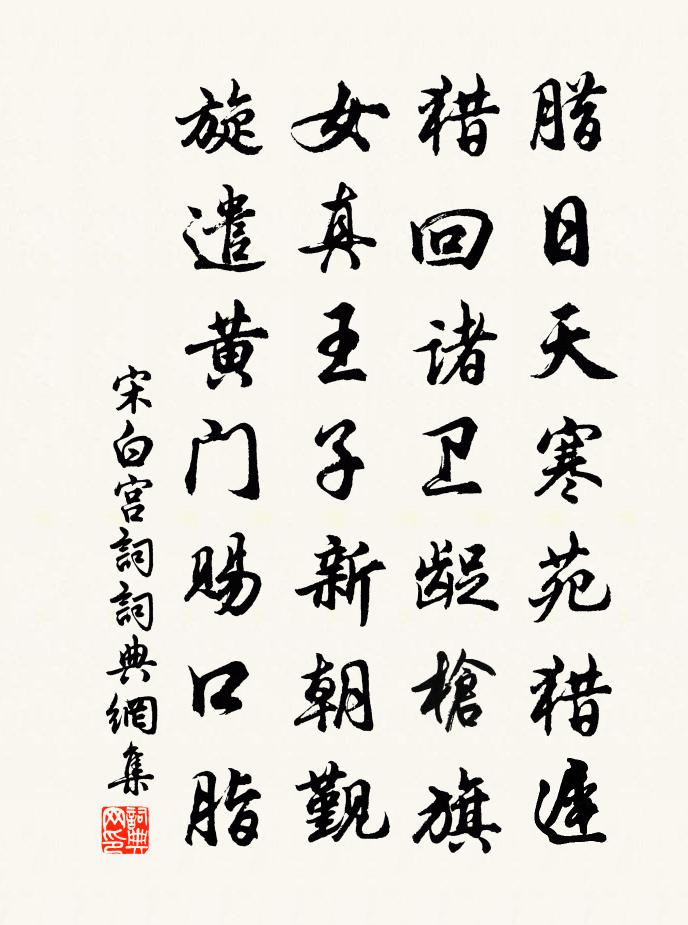 腊日天寒苑猎遲
猎回诸卫龊槍旗
女真王子新朝覲
旋遣黄门赐口脂
宋白宫詞詞典網集
詞典网印